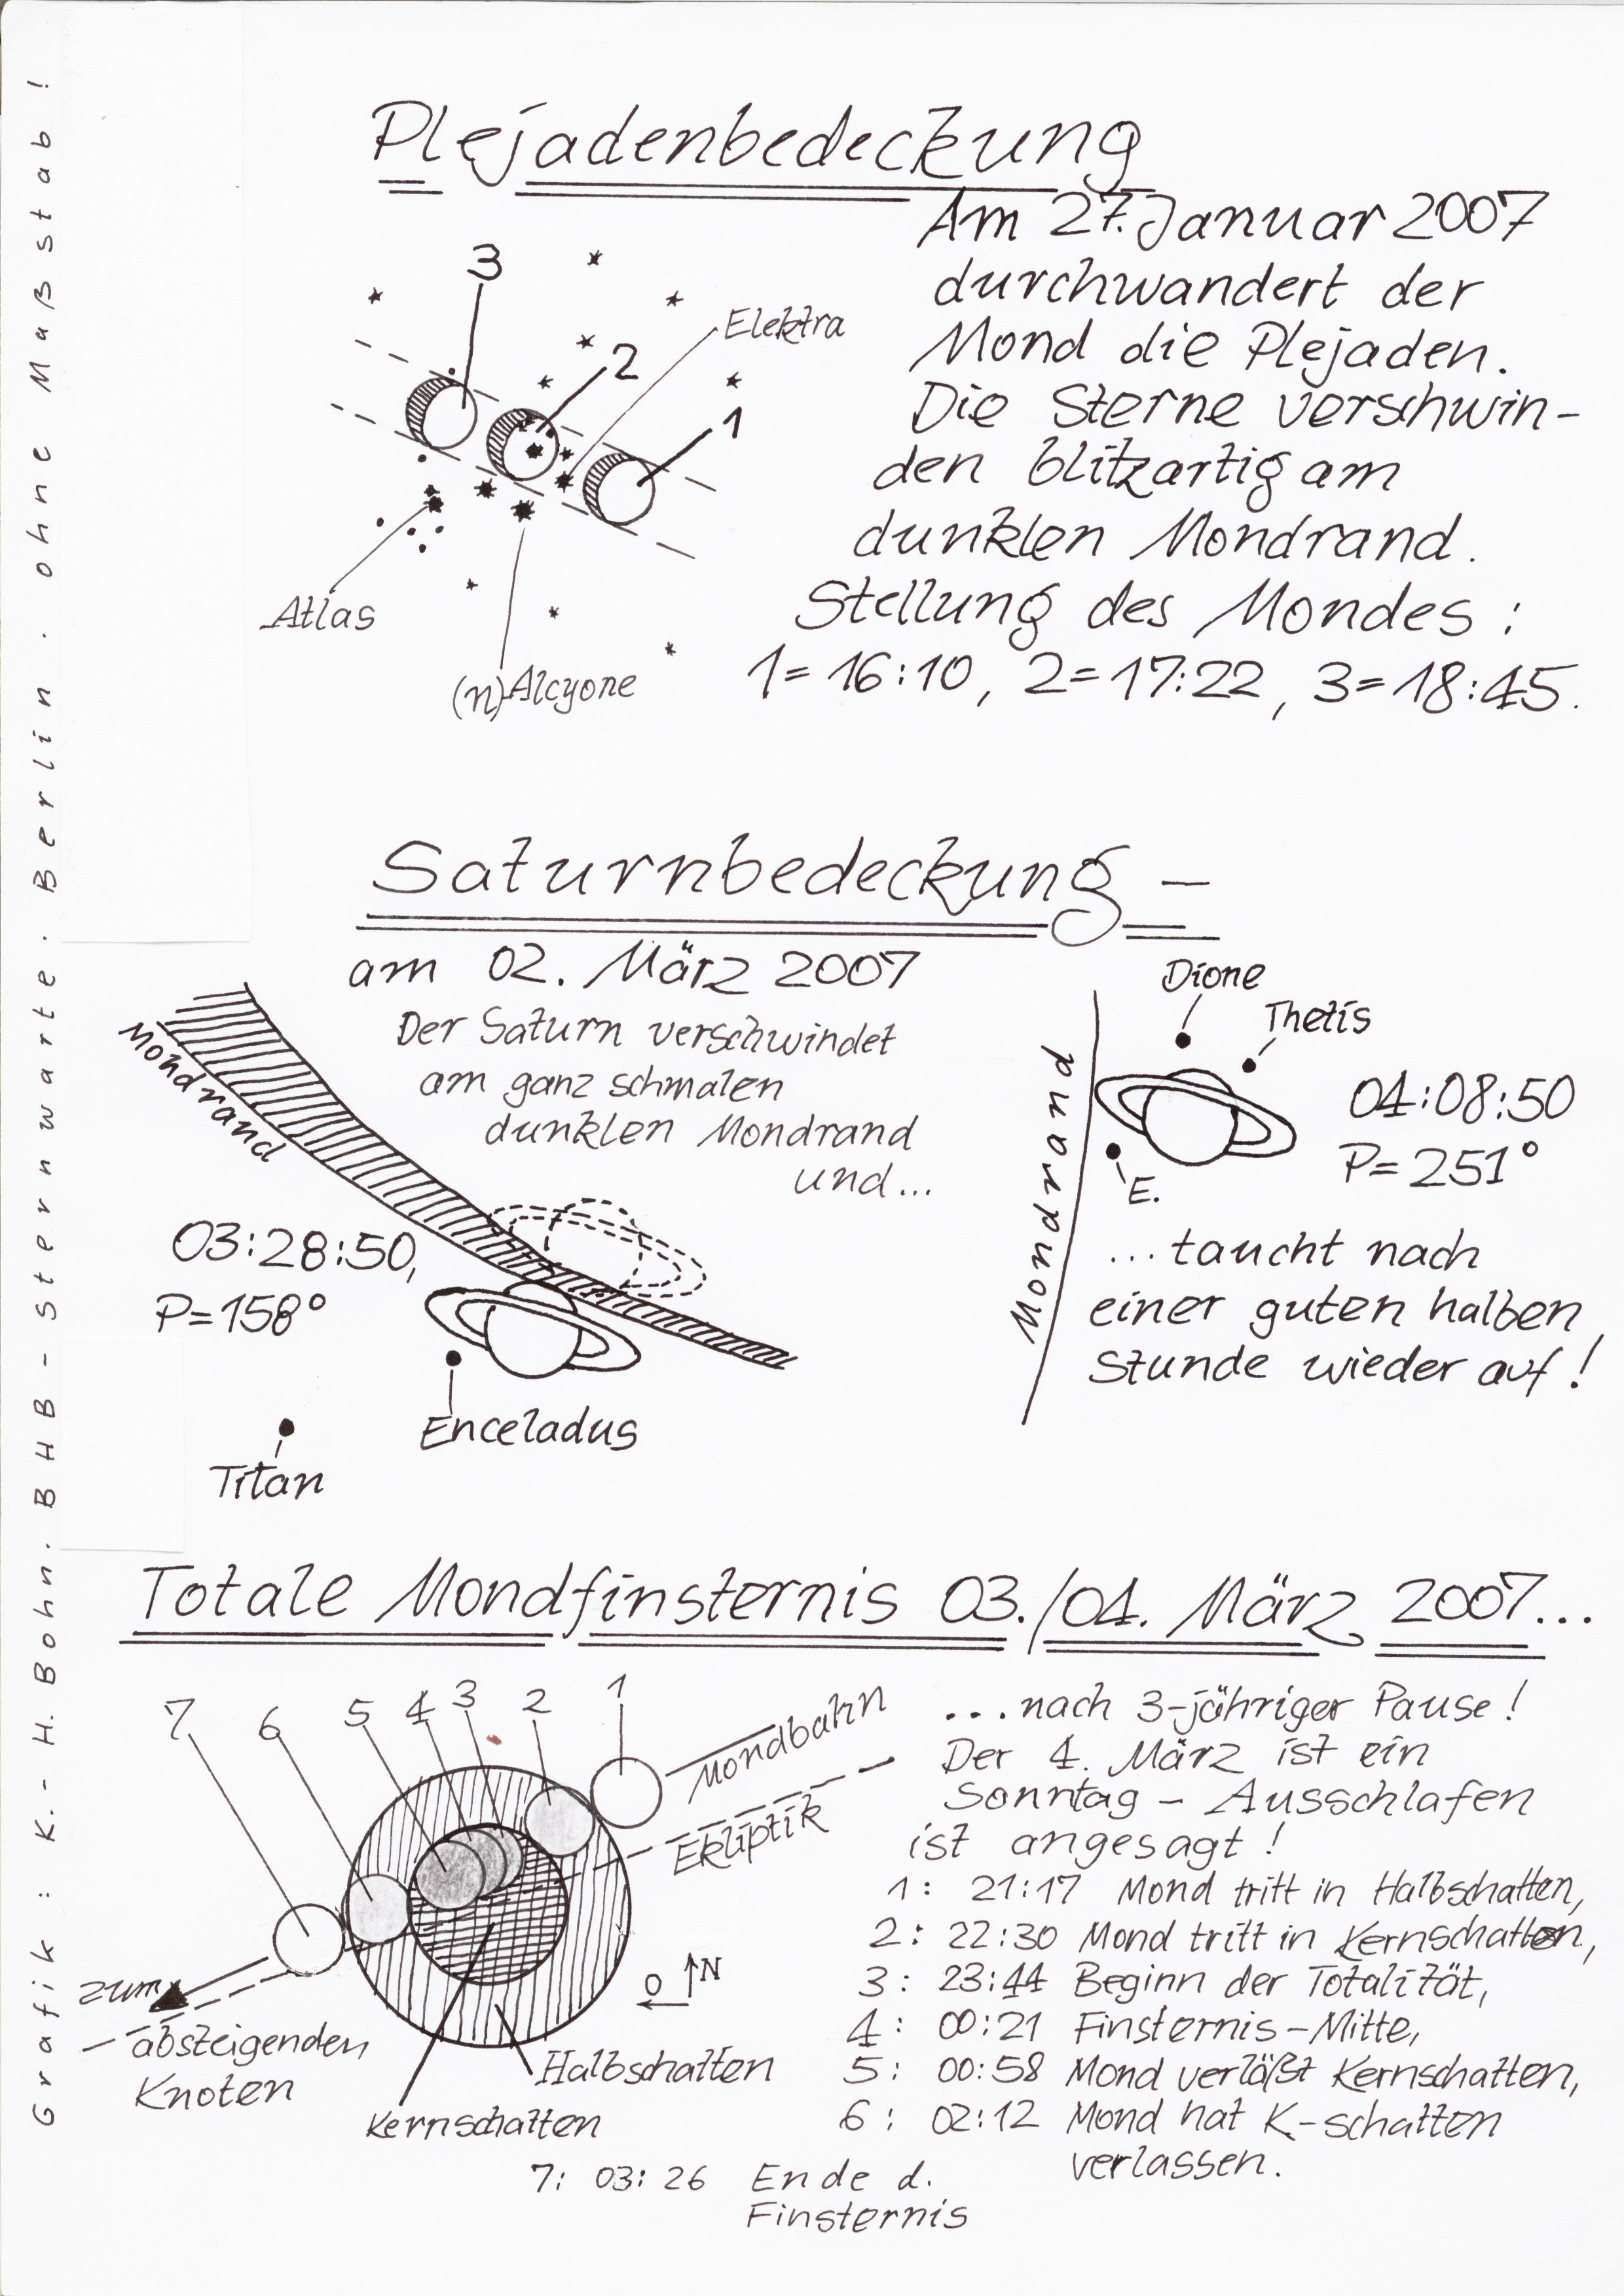 Plejadenbedeckung
Am 27. Januar 2007
durchwandert der
Mond die Plejaden.
Die Sterne verschwin-
den blitzartig am
dunklen Mondrand.
Stellung des Mondes:
1=16:10, 2=17:22, 3=18:45.
3
2
Elektra
1
Atlas
(η) Alcyone
Saturnbedeckung –
am 02. März 2007
Der Saturn verschwindet
am ganz schmalen
dunklen Mondrand
und...
Mondrand
03:28:50,
P=158°
Enceladus
Titan
Dione
Thetis
Mondrand
04:08:50
P=251°
E.
...taucht nach
einer guten halben
Stunde wieder auf!
Totale Mondfinsternis 03./04. März 2007...
7 6 5 4 3 2 1
Mondbahn
Ekliptik
O N
zum
absteigenden
Knoten
Halbschatten
Kernschatten
...nach 3-jähriger Pause!
Der 4. März ist ein
Sonntag – Ausschlafen
ist angesagt!
1: 21:17 Mond tritt in Halbschatten,
2: 22:30 Mond tritt in Kernschatten,
3: 23:44 Beginn der Totalität,
4: 00:21 Finsternis-Mitte,
5: 00:58 Mond verläßt Kernschatten,
6: 02:12 Mond hat K-schatten
verlassen.
7: 03:26 Ende d.
Finsternis
Grafik: K.-H. Bohn. BHB-Sternwarte. Berlin. ohne Maßstab!